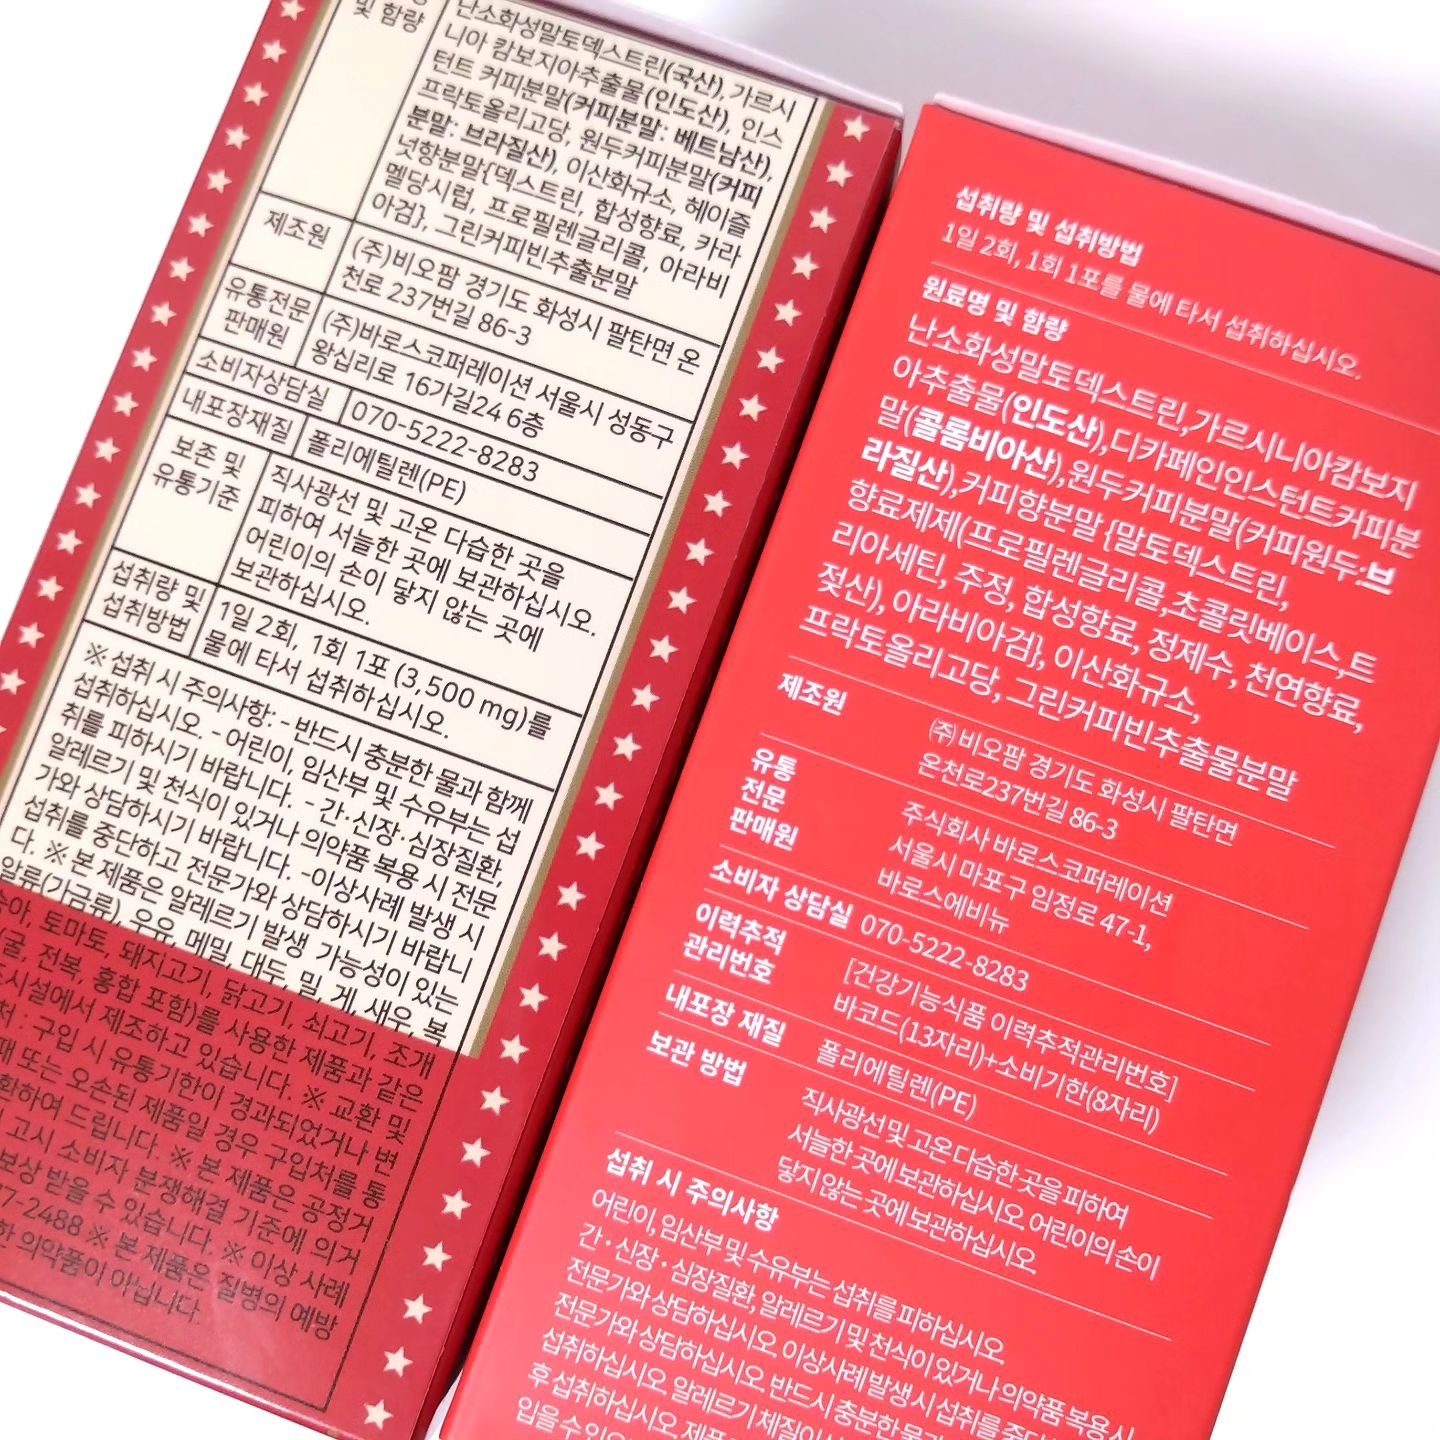 및 함량
난소화성말토덱스트린(국산), 가르시
니아 캄보지아추출물(인도산), 인스
턴트 커피분말(커피분말: 베트남산),
프락토올리고당, 원두커피분말(커피
분말: 브라질산), 이산화규소, 헤이즐
넛향분말{덱스트린, 합성향료, 카라
멜당시럽, 프로필렌글리콜, 아라비
아검}, 그린커피빈추출분말
제조원
(주)비오팜 경기도 화성시 팔탄면 온
천로 237번길 86-3
유통전문
판매원
(주)바로스코퍼레이션 서울시 성동구
왕십리로 16가길24 6층
소비자상담실
070-5222-8283
내포장재질
폴리에틸렌(PE)
보존 및
유통기준
직사광선 및 고온 다습한 곳을
피하여 서늘한 곳에 보관하십시오.
어린이의 손이 닿지 않는 곳에
보관하십시오.
섭취량 및
섭취방법
1일 2회, 1회 1포 (3,500 mg)를
물에 타서 섭취하십시오.
※ 섭취 시 주의사항: - 반드시 충분한 물과 함께
섭취하십시오. - 어린이, 임산부 및 수유부는 섭
취를 피하시기 바랍니다. - 간·신장·심장질환,
알레르기 및 천식이 있거나 의약품 복용 시 전문
가와 상담하시기 바랍니다. -이상사례 발생 시
섭취를 중단하고 전문가와 상담하시기 바랍니
다. ※ 본 제품은 알레르기 발생 가능성이 있는
알류(가금류), 우유, 메밀, 대두, 밀, 게, 새우, 복
토마토, 돼지고기, 닭고기, 쇠고기, 조개
전복, 홍합 포함)를 사용한 제품과 같은
제조하고 있습니다. ※ 교환 및
: 구입 시 유통기한이 경과되었거나 변
또는 오손된 제품일 경우 구입처를 통
드립니다. ※ 본 제품은 공정거
고시 소비자 분쟁해결 기준에 의거
보상 받을 수 있습니다. ※ 이상 사례
7-2488 ※ 본 제품은 질병의 예방
의약품이 아닙니다.
섭취량 및 섭취방법
1일 2회, 1회 1포를 물에 타서 섭취하십시오.
원료명 및 함량
난소화성말토덱스트린,가르시니아캄보지
아추출물(인도산),디카페인인스턴트커피분
말(콜롬비아산),원두커피분말(커피원두:브
라질산),커피향분말 {말토덱스트린,
향료제제(프로필렌글리콜,초콜릿베이스,트
리아세틴, 주정, 합성향료, 정제수, 천연향료,
젖산), 아라비아검}, 이산화규소,
프락토올리고당, 그린커피빈추출물분말
제조원
㈜비오팜 경기도 화성시 팔탄면
온천로237번길 86-3
유통
전문
판매원
주식회사 바로스코퍼레이션
서울시 마포구 임정로 47-1,
바로스에비뉴
소비자 상담실 070-5222-8283
이력추적
관리번호
[건강기능식품 이력추적관리번호]
바코드(13자리)+소비기한(8자리)
내포장 재질
폴리에틸렌(PE)
보관 방법
직사광선 및 고온 다습한 곳을 피하여
서늘한 곳에 보관하십시오. 어린이의 손이
닿지 않는 곳에 보관하십시오.
섭취 시 주의사항
어린이, 임산부 및 수유부는 섭취를 피하십시오.
간·신장·심장질환, 알레르기 및 천식이 있거나 의약품 복용 시
전문가와 상담하십시오. 이상사례 발생 시 섭취를
전문가와 상담하십시오. 반드시 충분한 물과
섭취하십시오. 알레르기 체질이
후 섭취하십시오.
입을 수